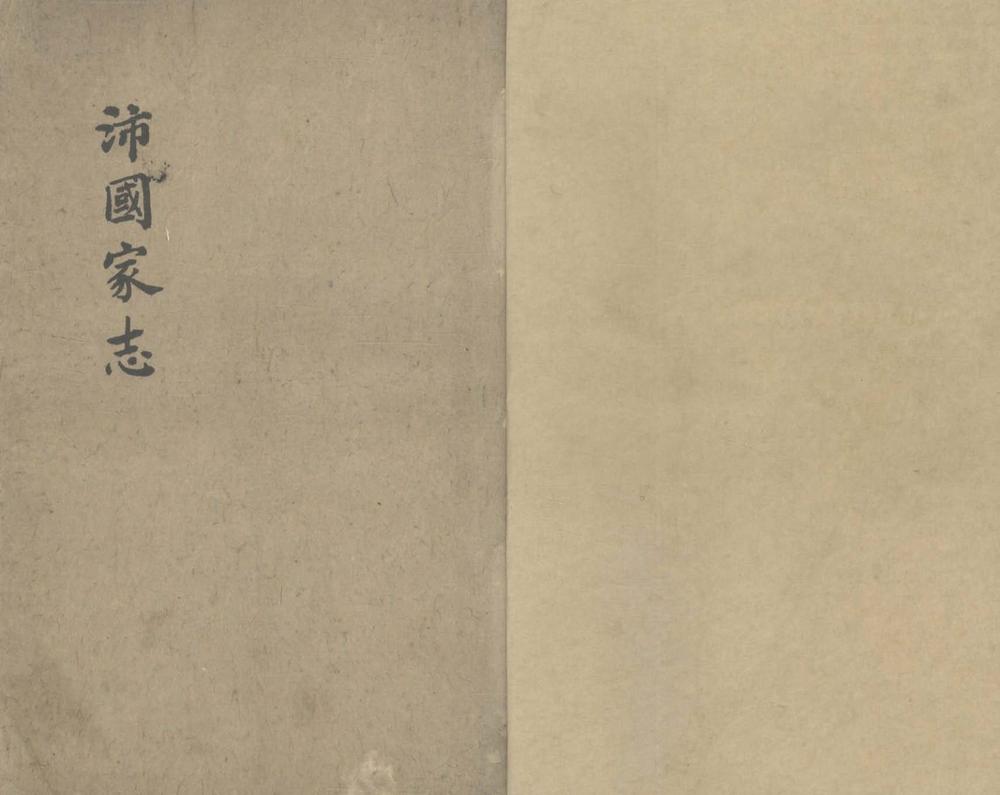 沛國家志